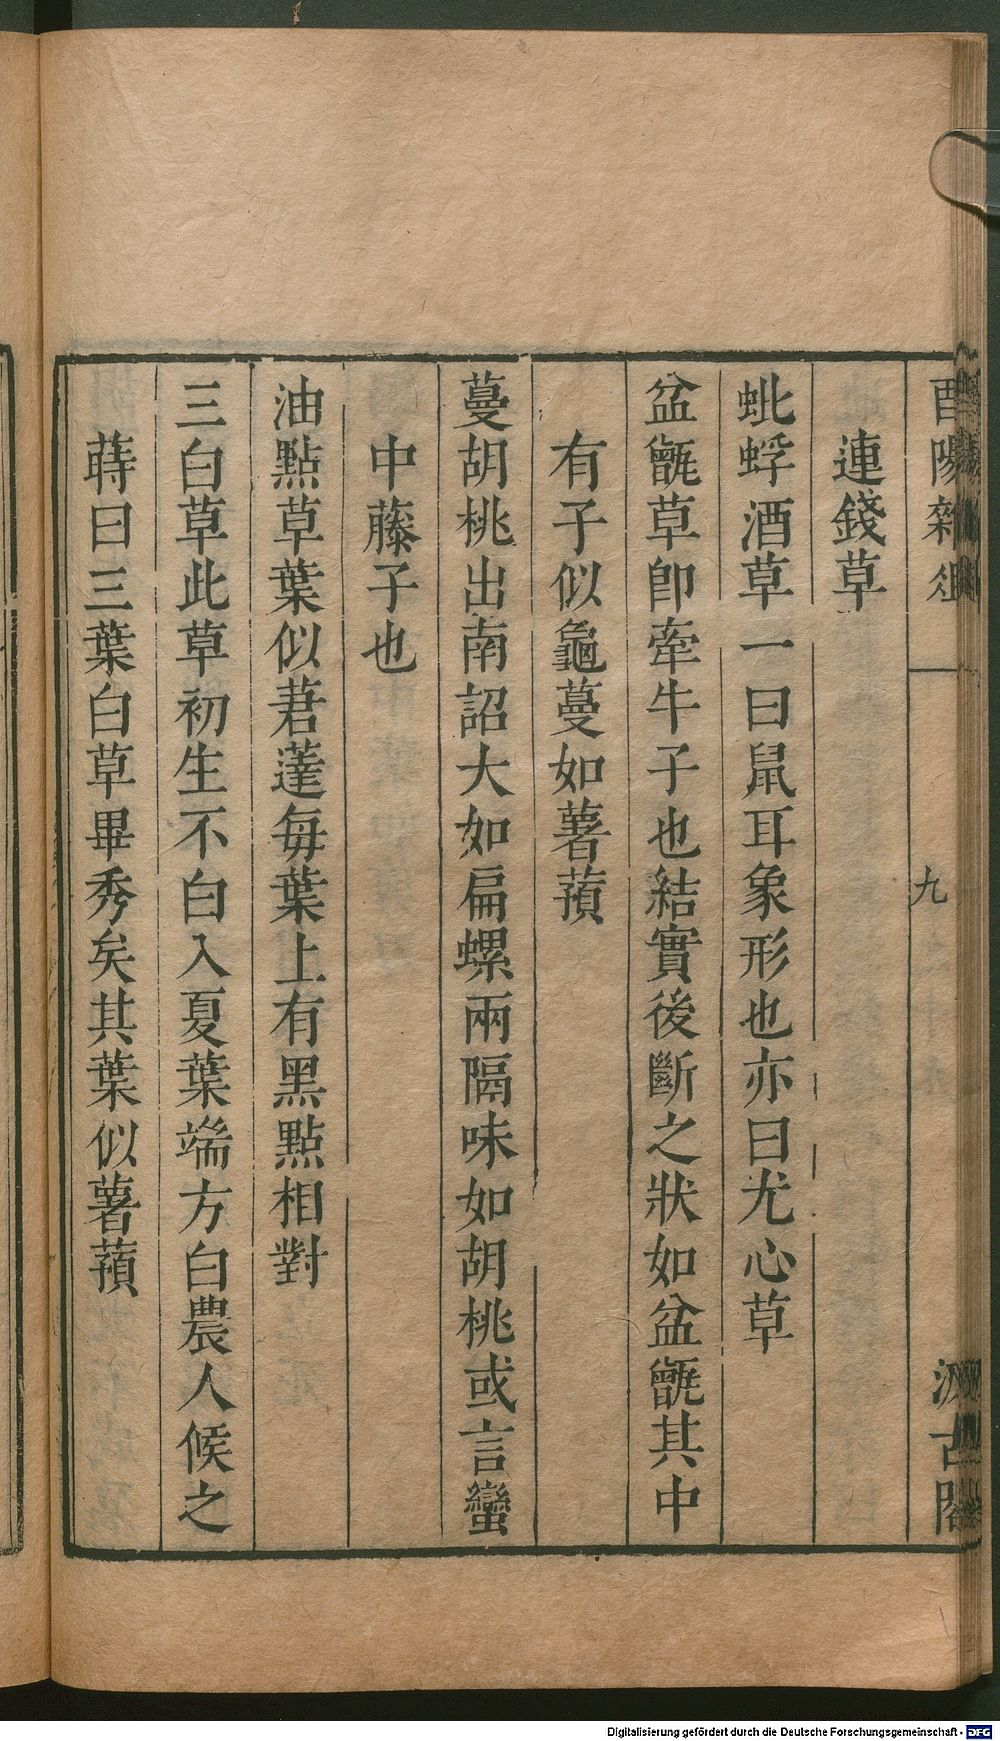 酉陽雜俎
九
汲古閣
連錢草
蚍蜉酒草一曰鼠耳象形也亦曰尤心草
盆甑草卽牽牛子也結實後斷之狀如盆甑其中
有子似龜蔓如薯蕷
蔓胡桃出南詔大如扁螺兩隔味如胡桃或言蠻
中藤子也
油點草葉似莙薘每葉上有黑點相對
三白草此草初生不白入夏葉端方白農人候之
蒔曰三葉白草畢秀矣其葉似薯蕷
Digitalisierung gefördert durch die Deutsche Forschungsgemeinschaft - DFG